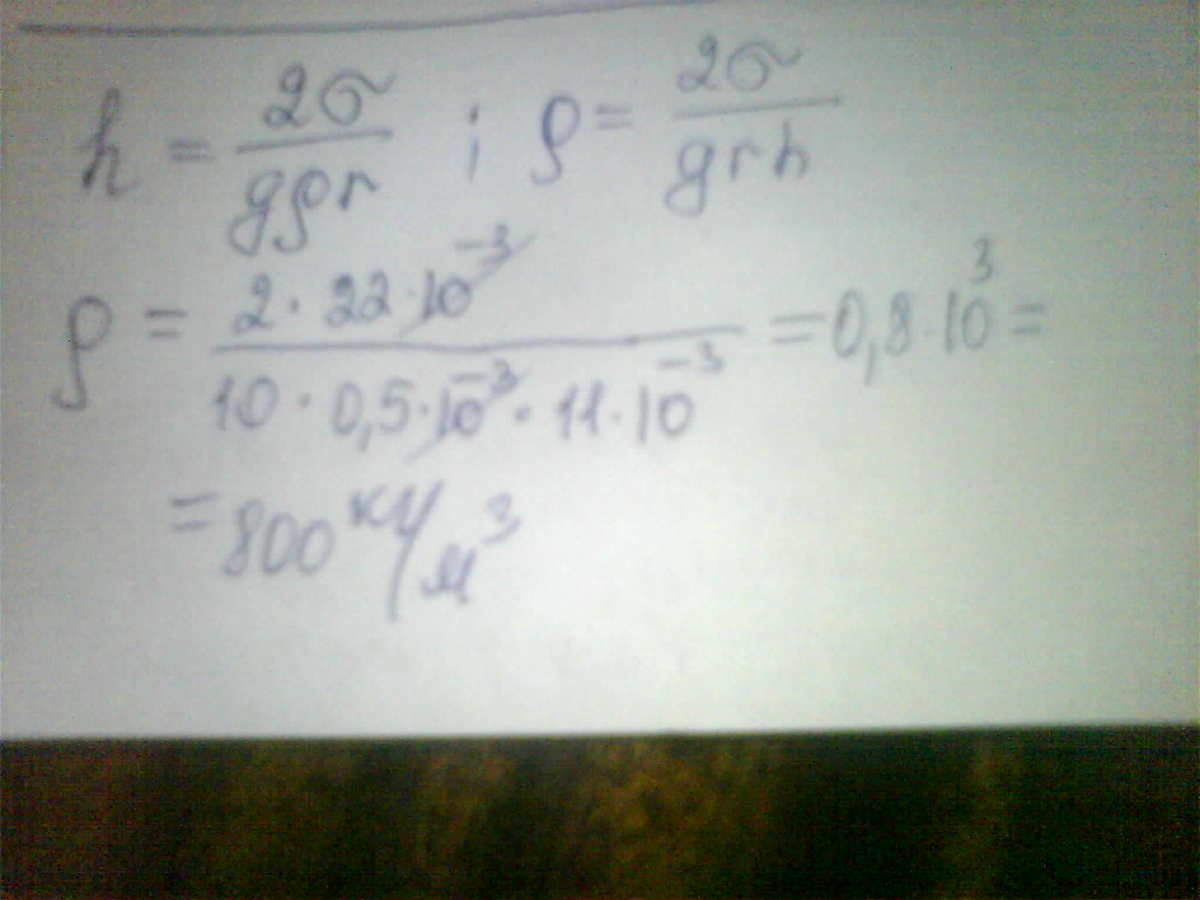 h = 2σ/gρr ; ρ = 2σ/grh
ρ = 2·22·10⁻³/10·0,5·10⁻³·11·10⁻³ = 0,8·10³ =
= 800 кг/м³